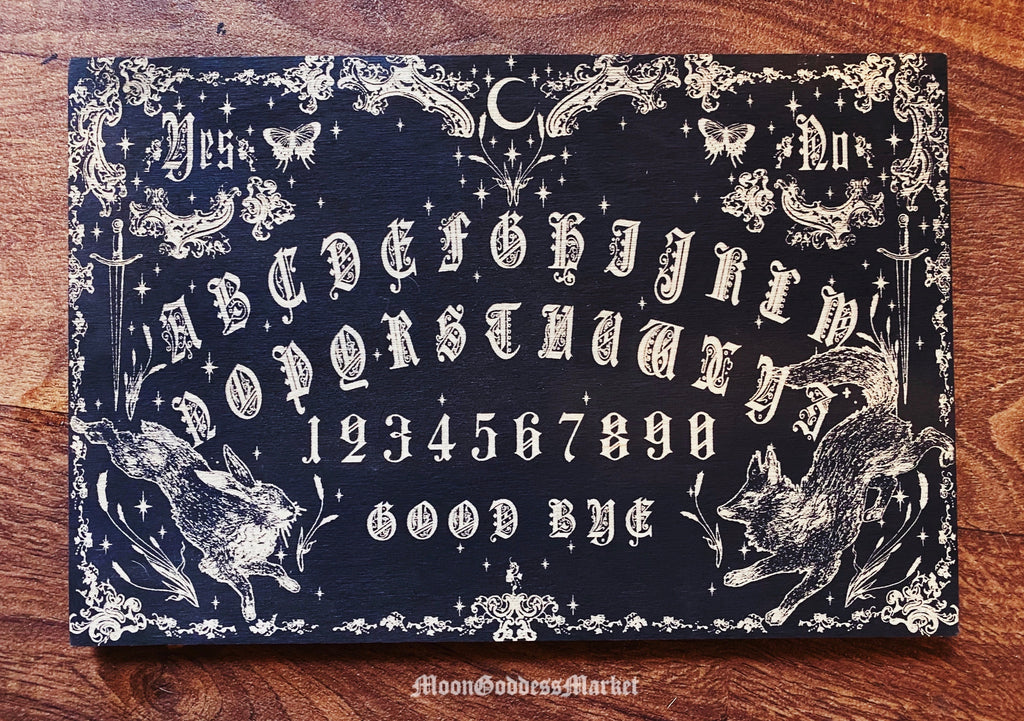 Yes No
A B C D E F G H I J K L M
N O P Q R S T U V W X Y Z
1 2 3 4 5 6 7 8 9 0
GOOD BYE
MoonGoddessMarket